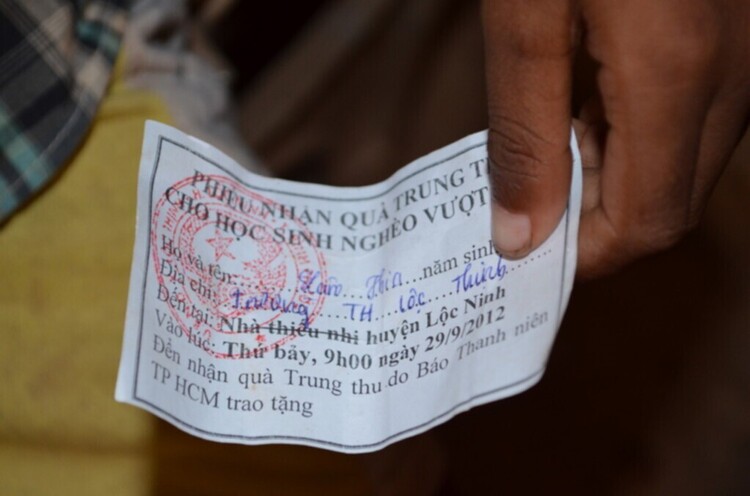 PHIẾU NHẬN QUÀ TRUNG T
CHO HỌC SINH NGHÈO VƯỢT
Họ và tên:.......năm sinh
Địa chỉ: Trường TH Lộc Thịnh
Đến tại: Nhà thiếu nhi huyện Lộc Ninh
Vào lúc: Thứ bảy, 9h00 ngày 29/9/2012
Đến nhận quà Trung thu do Báo Thanh niên
TP HCM trao tặng